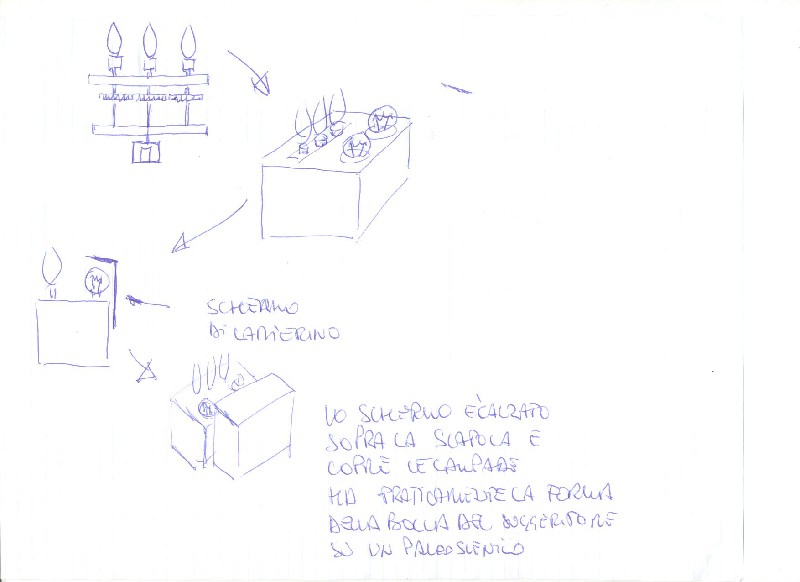 M
SCHERMO
DI LAMIERINO
LO SCHERMO E' CALZATO
SOPRA LA SCATOLA E
COPRE LE LAMPADE
HA PRATICAMENTE LA FORMA
DELLA BOLLA DEL SUGGERITORE
SU UN PALCOSCENICO